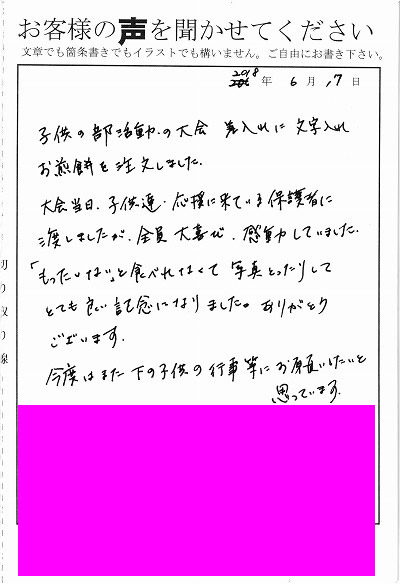 お客様の声を聞かせてください
文章でも箇条書きでもイラストでも構いません。ご自由にお書き下さい。
2018年 6月17日
子供の部活動の大会 差入れに 文字入れ
お煎餅を注文しました.
大会当日、子供達・応援に来ている保護者に
渡しましたが、全員 大喜び、感動していました.
「もったいない」と食べれなくて 写真とったりして
とても良い記念になりました。ありがとう
ございます.
今度はまた 下の子供の行事等にお願いしたいと
思っています.
切り取り線